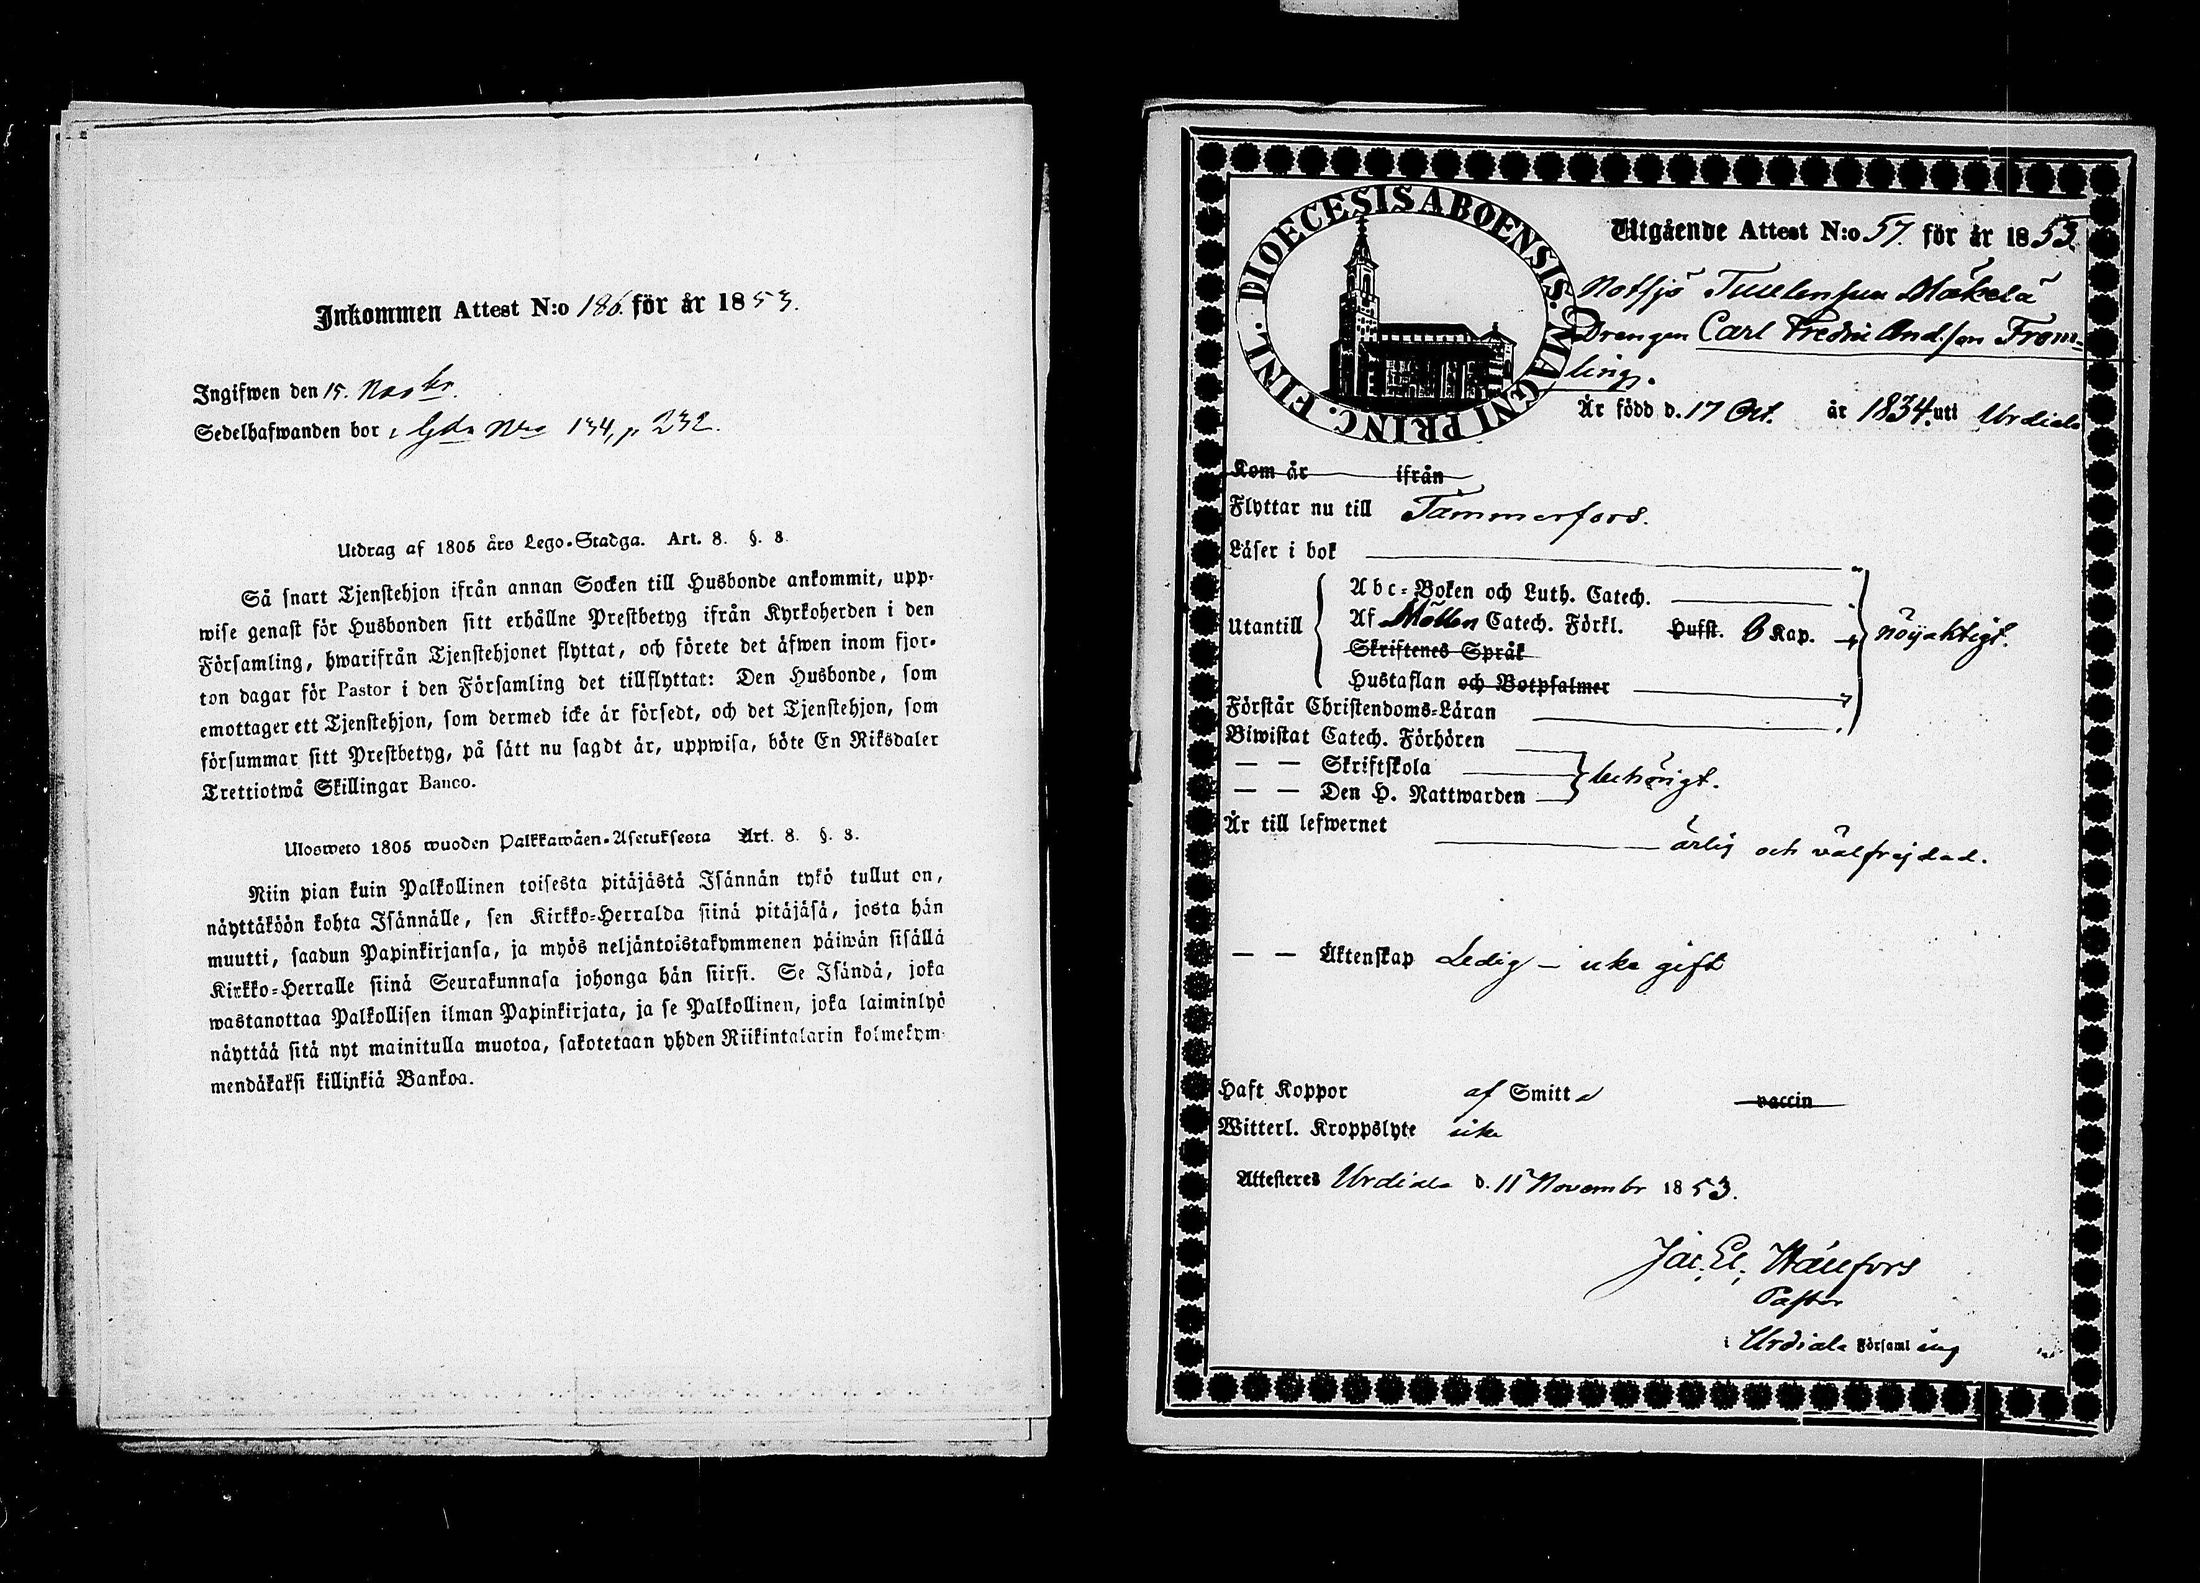 Inkommen Attest N:o 186. för år 1853.
Ingifwen den 15. Novbr.
Sedelhafwanden bor i Gds Nro 134, p. 232.
Utdrag af 1805 års Lego-Stadga. Art. 8. §. 8.
Så snart Tjenstehjon ifrån annan Socken till Husbonde ankommit, upp-
wise genast för Husbonden sitt erhållne Prestbetyg ifrån Kyrkoherden i den
Församling, hwarifrån Tjenstehjonet flyttat, och förete det äfwen inom fjor-
ton dagar för Pastor i den Församling det tillflyttat: Den Husbonde, som
emottager ett Tjenstehjon, som dermed icke är försedt, och det Tjenstehjon, som
försummar sitt Prestbetyg, på sätt nu sagdt är, uppwisa, böte En Riksdaler
Trettiotwå Skillingar Banco.
Ulosweto 1805 wuoden Palkkawäen-Asetuksesta Art. 8. §. 8.
Niin pian kuin Palkollinen toisesta pitäjästä Isännän tykö tullut on,
näyttäköön kohta Isännälle, sen Kirkko-Herralda siinä pitäjäsä, josta hän
muutti, saadun Papinkirjansa, ja myös neljäntoistakymmenen päiwän sisällä
Kirkko-Herralle siinä Seurakunnasa johonga hän siirsi. Se Isändä, joka
wastanottaa Palkollisen ilman Papinkirjata, ja se Palkollinen, joka laiminlyö
näyttää sitä nyt mainitulla muotoa, sakotetaan yhden Riikintalarin kolmekym-
mendäkaksi killinkiä Bankoa.
DIOECESIS ABOENSIS. MAGNI PRINC. FINL.
Utgående Attest N:o 57. för år 1853.
Notsjö Mäkelä
Drengen Carl Fredric And.son From-
ling.
Är född d. 17 Oct. år 1834. uti Urdiala
Kom år ifrån
Flyttar nu till Tammerfors.
Läser i bok
Abc-Boken och Luth. Catech.
Utantill Af Möllers Catech. Förkl. Hufst. 6 Kap. nöyaktigt.
Skriftenes Språk
Hustaflan och Botpsalmer
Förstår Christendoms-Läran
Biwistat Catech. Förhören
— — Skriftskola behörigt.
— — Den H. Nattwarden
Är till lefwernet ärlig och välfrejdad.
— — Äktenskap Ledig – icke gift
Haft Koppor af Smitta vaccin
Witterl. Kroppslyte icke
Attesteres Urdiala d. 11 Novembr 1853.
Jac. El. Hällfors
Pastor
i Urdiala Församling